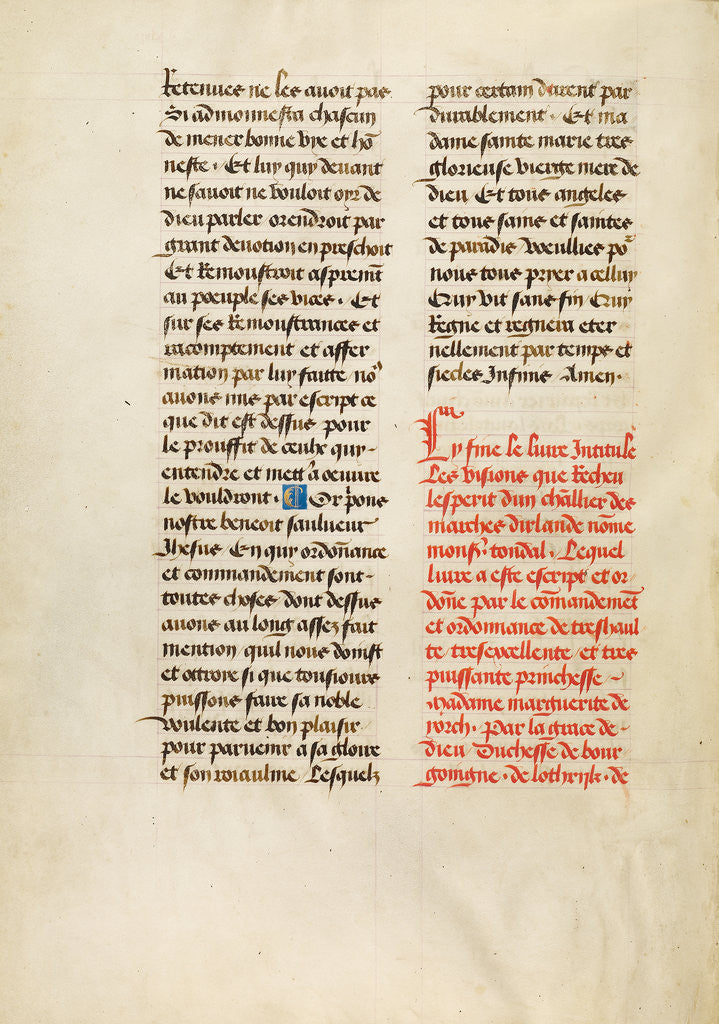 Retenues ne les auoit pas
Si admonnesta chascun
de mener bonne vye et hōneste
neste . Et luy quy deuant
ne sauoit ne vouloit oyr de
dieu parler orendroit par
grant deuotion en preschoit
Et Remoustroit aspremt̄
au poeuple ses vices . Et
sur ses Remoustrances et
racomptement et affer
mation par luy faitte no9
auons mis par escript ce
que dit est dessus pour
le prouffit de ceulx quy
entendre et mettr̄ a oeuure
le vouldront . C Or prions
nostre beneoit sauueur
Jhesus En quy ordōnance
et commandement sont
toutes choses dont dessus
auons au long assez fait
mention quil nous doinst
et ottroie si que tousiours
puissons faire sa noble
voulente et bon plaisir
pour paruenir a sa gloire
et son roiaulme Lesquelz
pour certain durent par
durablement . Et ma
dame sainte marie tres
glorieuse vierge mere de
dieu Et tous angeles
et tous sains et saintes
de paradis Voeullies po᷑
nous tous pryer a celluy
Quy vit sans fin Quy
Regne et regnera eter
nellement par temps et
siecles Infinis Amen .
Cy fine le liure Intitule
Les visions que Recheu
lesperit dun chlłier des
marches dirlande nōme
monsr̄ . tondal . Lequel
liure a este escript et or
dōne par le cōmandemēt
et ordonnance de treshaul
te tresexcellente et tres
puissante princhesse
Madame marguerite de
yorch . Par la grace de
dieu Duchesse de bour
goingne . de lothrijk . de